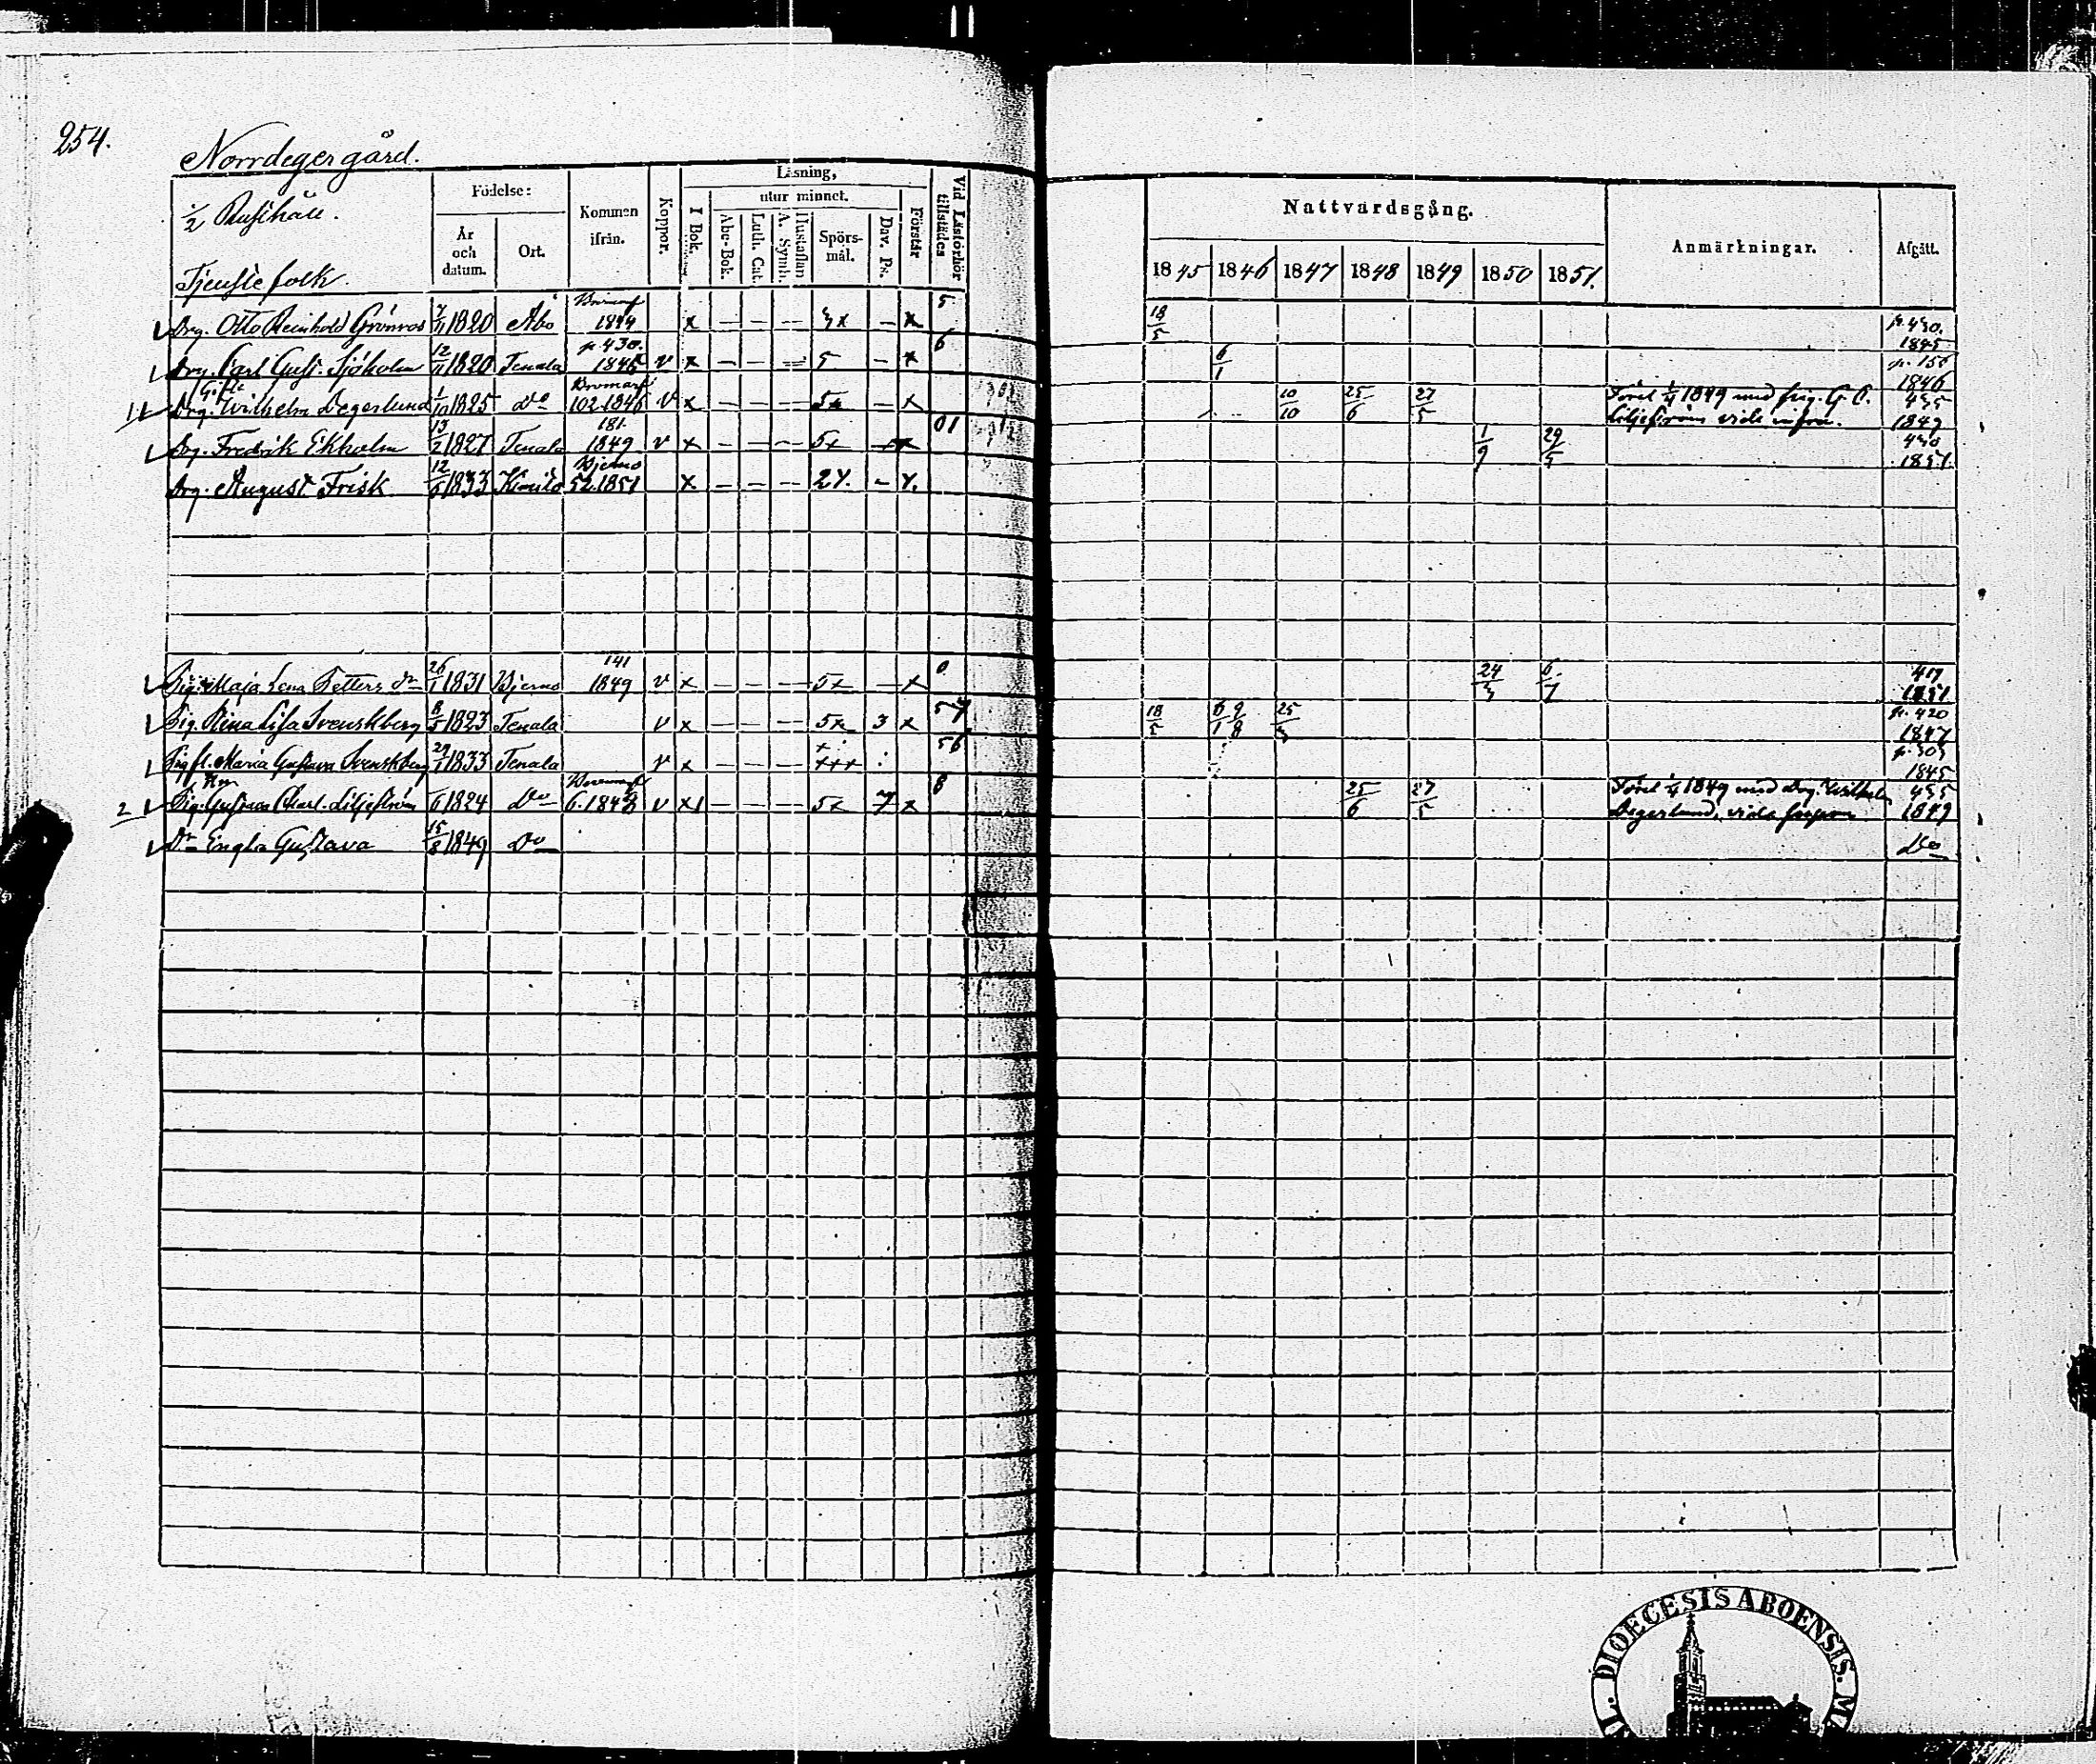 254.
Norrdeger gård.
1/2 Rusthåll.
Tjenstefolk.
Födelse:
År och datum.
Ort.
Kommen ifrån.
Koppor.
Läsning,
I Bok.
utur minnet.
Abc-Bok.
Luth. Cat.
A. Symb.
Hustaflan
Spörsmål.
Dav. Ps.
Förstår
Vid Läsförhör tillstädes
Nattvardsgång.
1845 1846 1847 1848 1849 1850 1851.
Anmärkningar.
Afgått.
Drg. Otto Reinhold Grönroos 1820 Åbo Bromarf 1844 x — — — 3x — x 5 18/5 p. 430. 1845
Drg. Carl Gust. Sjöholm 12/11 1820 Tenala p. 430. 1845 v x — — — 5 — x 6 6/1 p. 156 1846
Gift
Drg. Wilhelm Degerlund 1/10 1825 Do Bromarf 102.1846 v x — — — 5x — x 10/10 25/6 27/5 1/4 1849 med pig. G. C. Liljeström vide infra. 455 1849
Drg. Fredrik Ekholm 13/2 1827 Tenala 181. 1849 v x — — — 5x — x 01 1/9 29/5 430 1851.
Drg. August Frisk 12/6 1833 Kimito Bjerno 52.1851 x — — — 2x. — x.
Pig. Maja Lena Petters dr 26/1 1831 Bjerno 141 1849 v x — — — 5x — x 0 24/3 6/7 417 1851
Pig. Stina Lisa Svenskberg 8/5 1823 Tenala v x — — — 5x 3 x 57 18/5 6/1 9/8 25/3 p. 420 1847
Pig fl. Maria Gustava Svenskberg 29/1 1833 Tenala v x — — — xxx 56 p. 303 1845
Pig. Gustava Charl. Liljeström /6 1824 Do Bromarf 6.1848 v x — — — 5x 7 x 8 25/6 27/5 1/4 1849 med Drg. Wilhelm Degerlund, vide supra 455 1849
Dr Engla Gustava 15/8 1849 Do Do
DIOECESIS ABOENSIS.